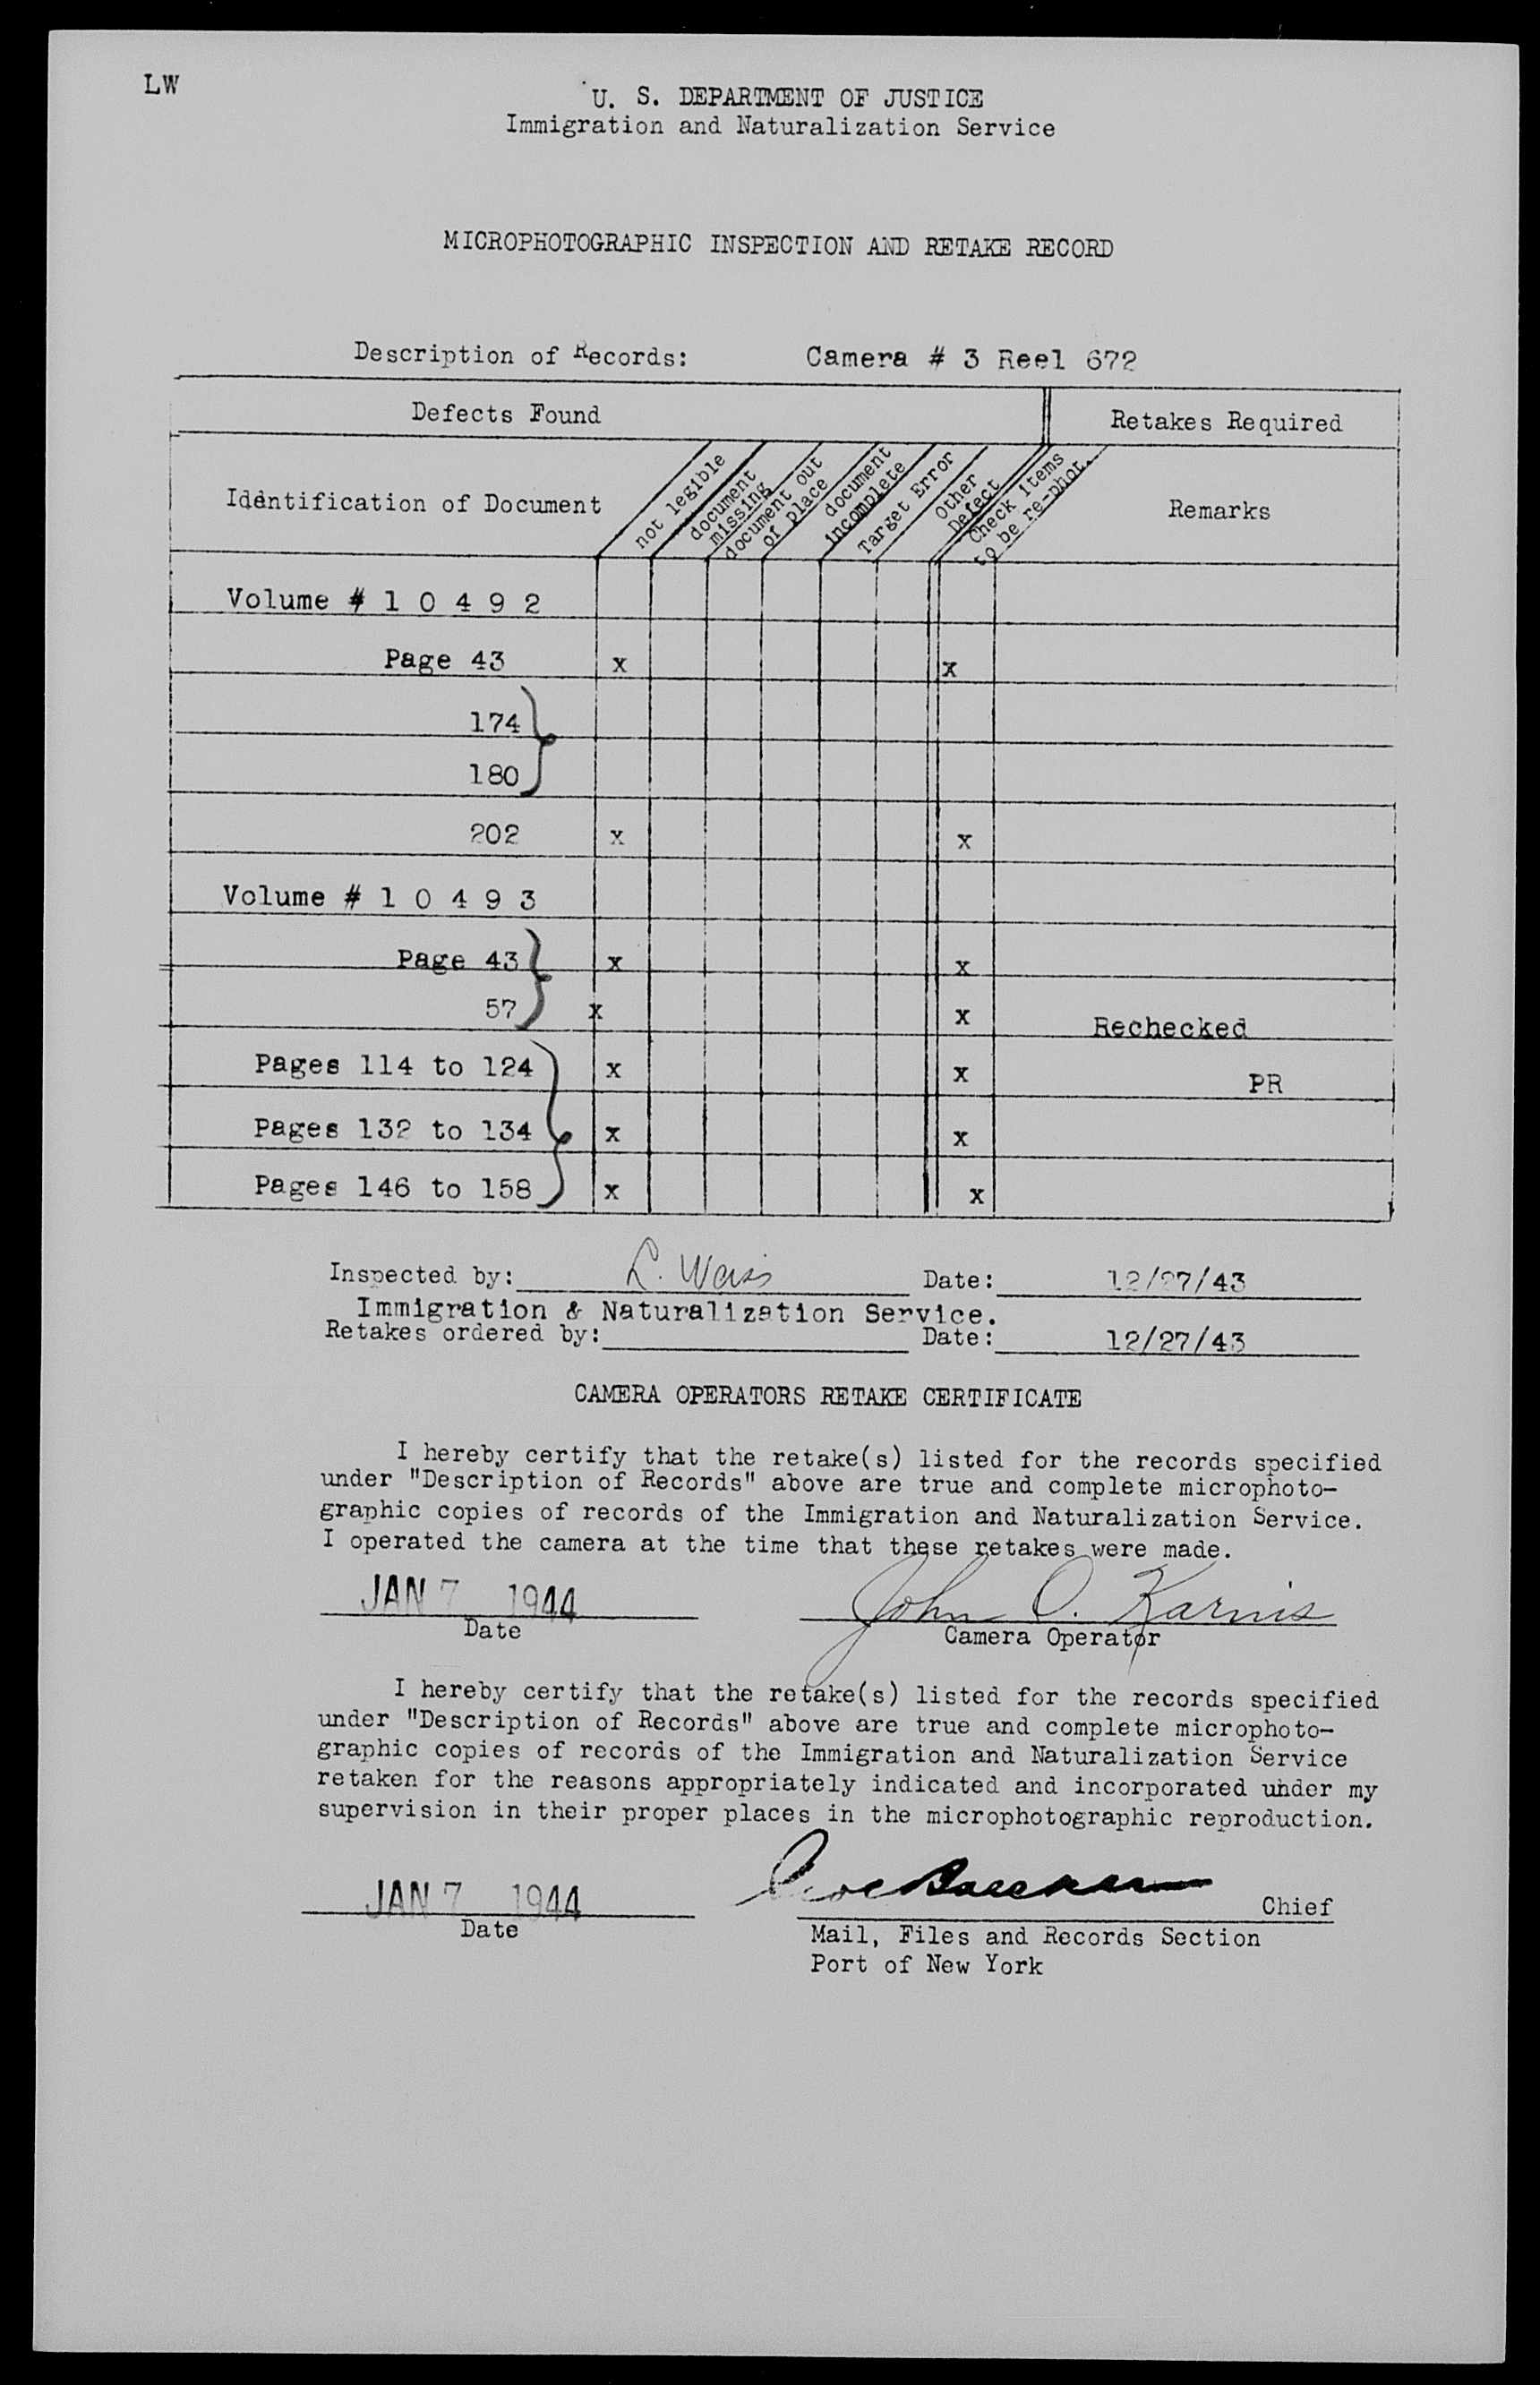 LW
U. S. DEPARTMENT OF JUSTICE
Immigration and Naturalization Service
MICROPHOTOGRAPHIC INSPECTION AND RETAKE RECORD
Description of Records: Camera # 3 Reel 672
Defects Found Retakes Required
Identification of Document
not legible
document missing
document out of place
document incomplete
Target Error
Other Defect
Check items to be re-phot.
Remarks
Volume # 1 0 4 9 2
Page 43 x x
174
180
202 x x
Volume # 1 0 4 9 3
Page 43 x x
57 x x Rechecked
Pages 114 to 124 x x PR
Pages 132 to 134 x x
Pages 146 to 158 x x
Inspected by: L. Weiss Date: 12/27/43
Immigration & Naturalization Service.
Retakes ordered by: Date: 12/27/43
CAMERA OPERATORS RETAKE CERTIFICATE
I hereby certify that the retake(s) listed for the records specified
under "Description of Records" above are true and complete microphoto-
graphic copies of records of the Immigration and Naturalization Service.
I operated the camera at the time that these retakes were made.
JAN 7 1944 John O. Karnis
Date Camera Operator
I hereby certify that the retake(s) listed for the records specified
under "Description of Records" above are true and complete microphoto-
graphic copies of records of the Immigration and Naturalization Service
retaken for the reasons appropriately indicated and incorporated under my
supervision in their proper places in the microphotographic reproduction.
JAN 7 1944 Chief
Date Mail, Files and Records Section
Port of New York